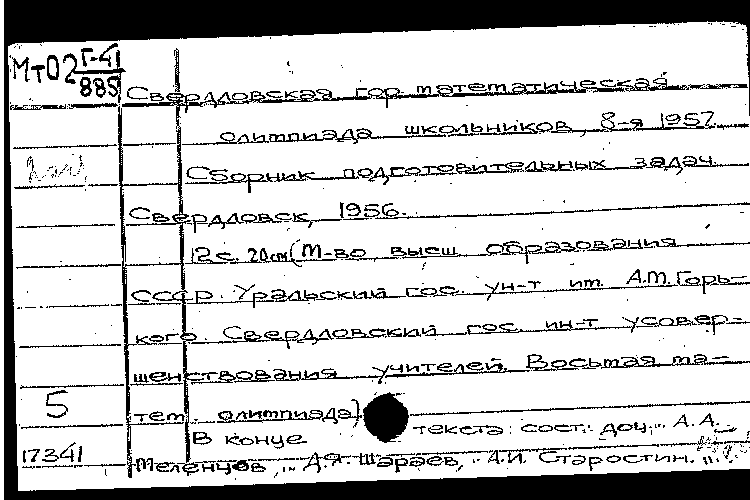 Мт02 Г-41
885
Свердловская гор математическая
олимпиада школьников, 8-я 1957.
Сборник подготовительных задач
Свердловск, 1956.
12 с. 20 см (М-во высш образования
СССР. Уральский гос. ун-т им. А.М. Горь-
кого. Свердловский гос. ин-т усовер-
шенствования учителей. Восьмая ма-
5 тем. олимпиада)
В конце текста: сост.: доц. А.А.
17341 Меленцов, Д.Я. Шараев, А.И. Старостин.